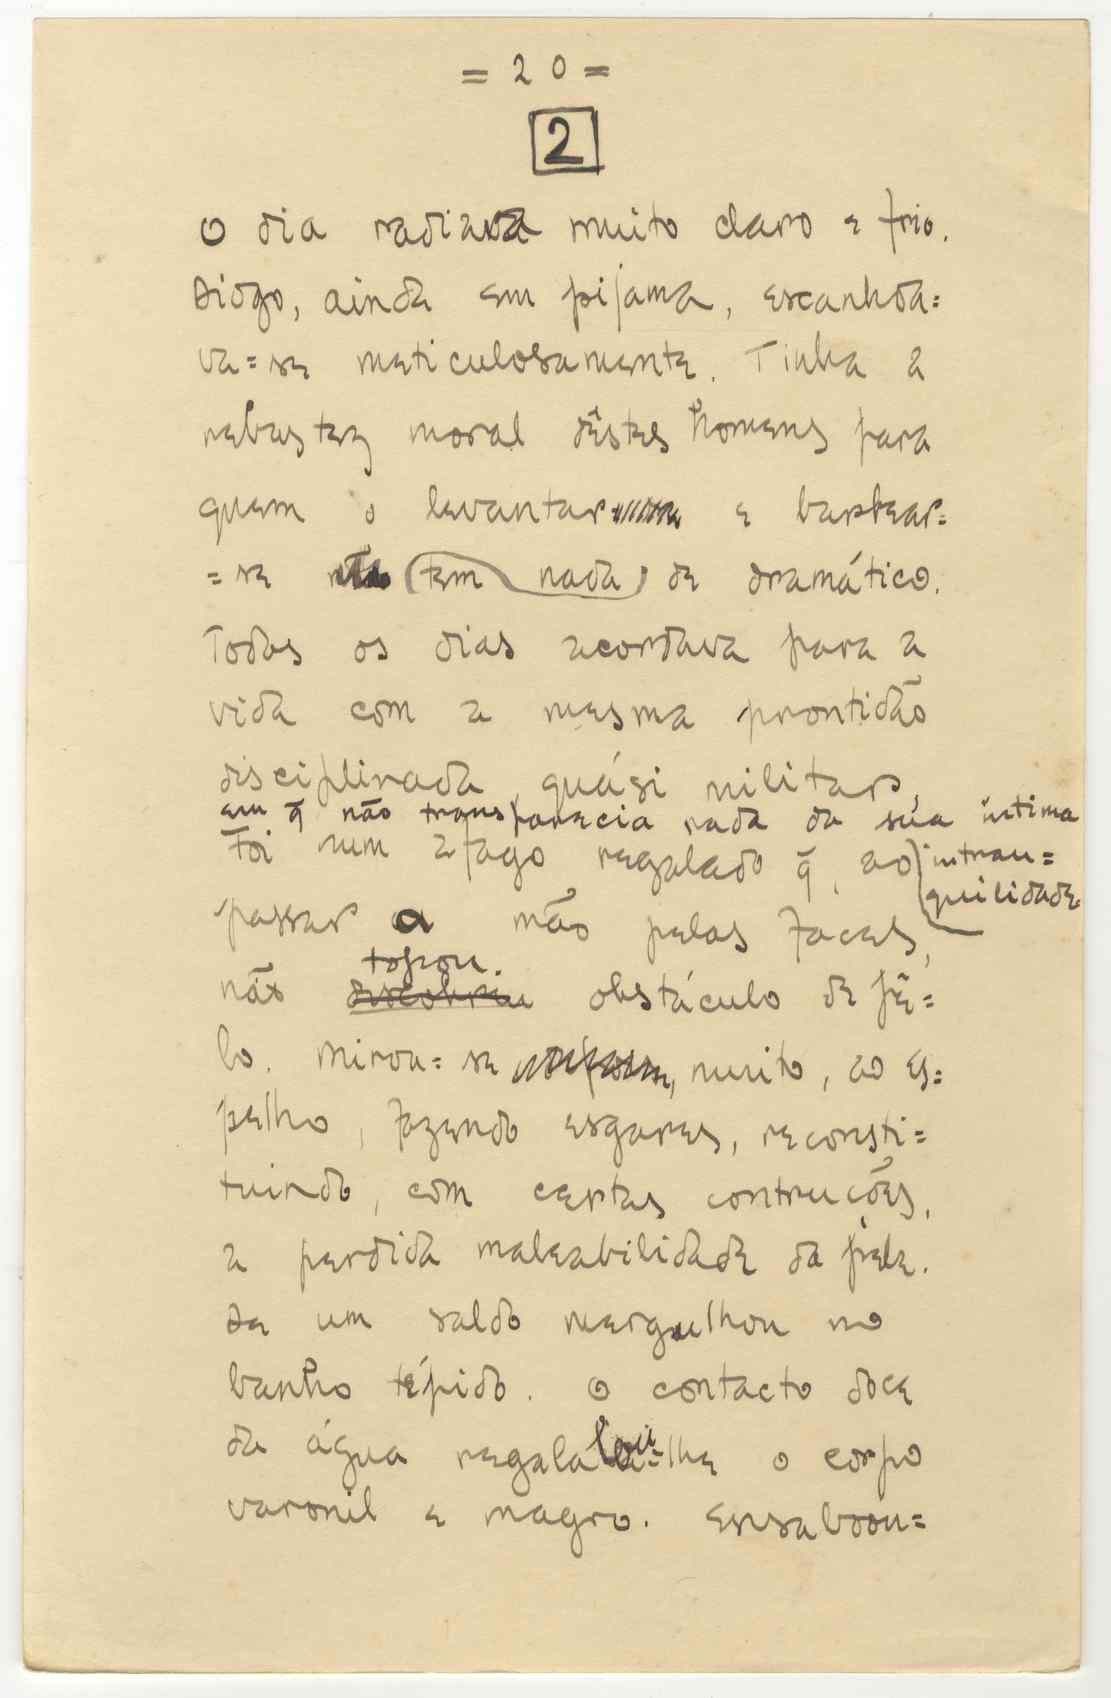 = 20 =
2
O dia radiava muito claro e frio.
Diogo, ainda em pijama, escanhoa=
va=se meticulosamente. Tinha a
robustez moral dêstes homens para
quem o levantar e barbear=
=se não (tem nada) de dramático.
Todos os dias acordava para a
vida com a mesma prontidão
disciplinada, quási militar,
em q̃ não transparecia nada da súa íntima
intran=
quilidade.
Foi num afago regalado q̃, ao
passar a mão pelas faces,
topou
não descobriu obstáculo de pê=
lo. Mirou=se muito, ao es=
pelho, fazendo esgares, reconsti=
tuindo, com certas contrucões,
a perdida maleabilidade da pele.
De um saldo mergulhou no
banho tépido. O contacto doce
da água regalou-lhe o corpo
varonil e magro. Ensaboou=